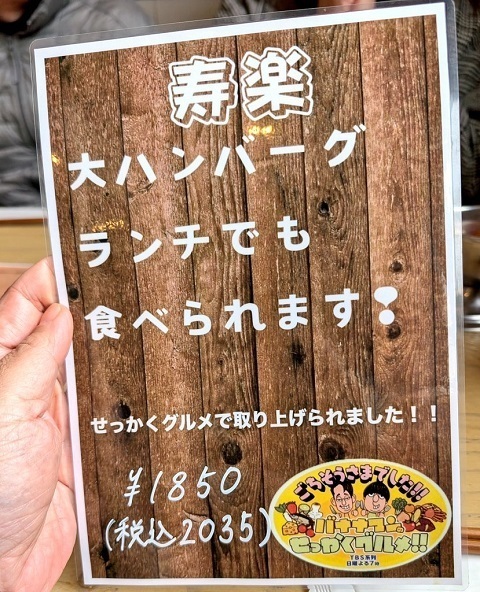 寿楽
大ハンバーグ
ランチでも
食べられます❢
せっかくグルメで取り上げられました！！
¥1850
(税込2035)
ごちそうさまでした!!
バナナマンの
せっかくグルメ!!
TBS系列
日曜よる7時